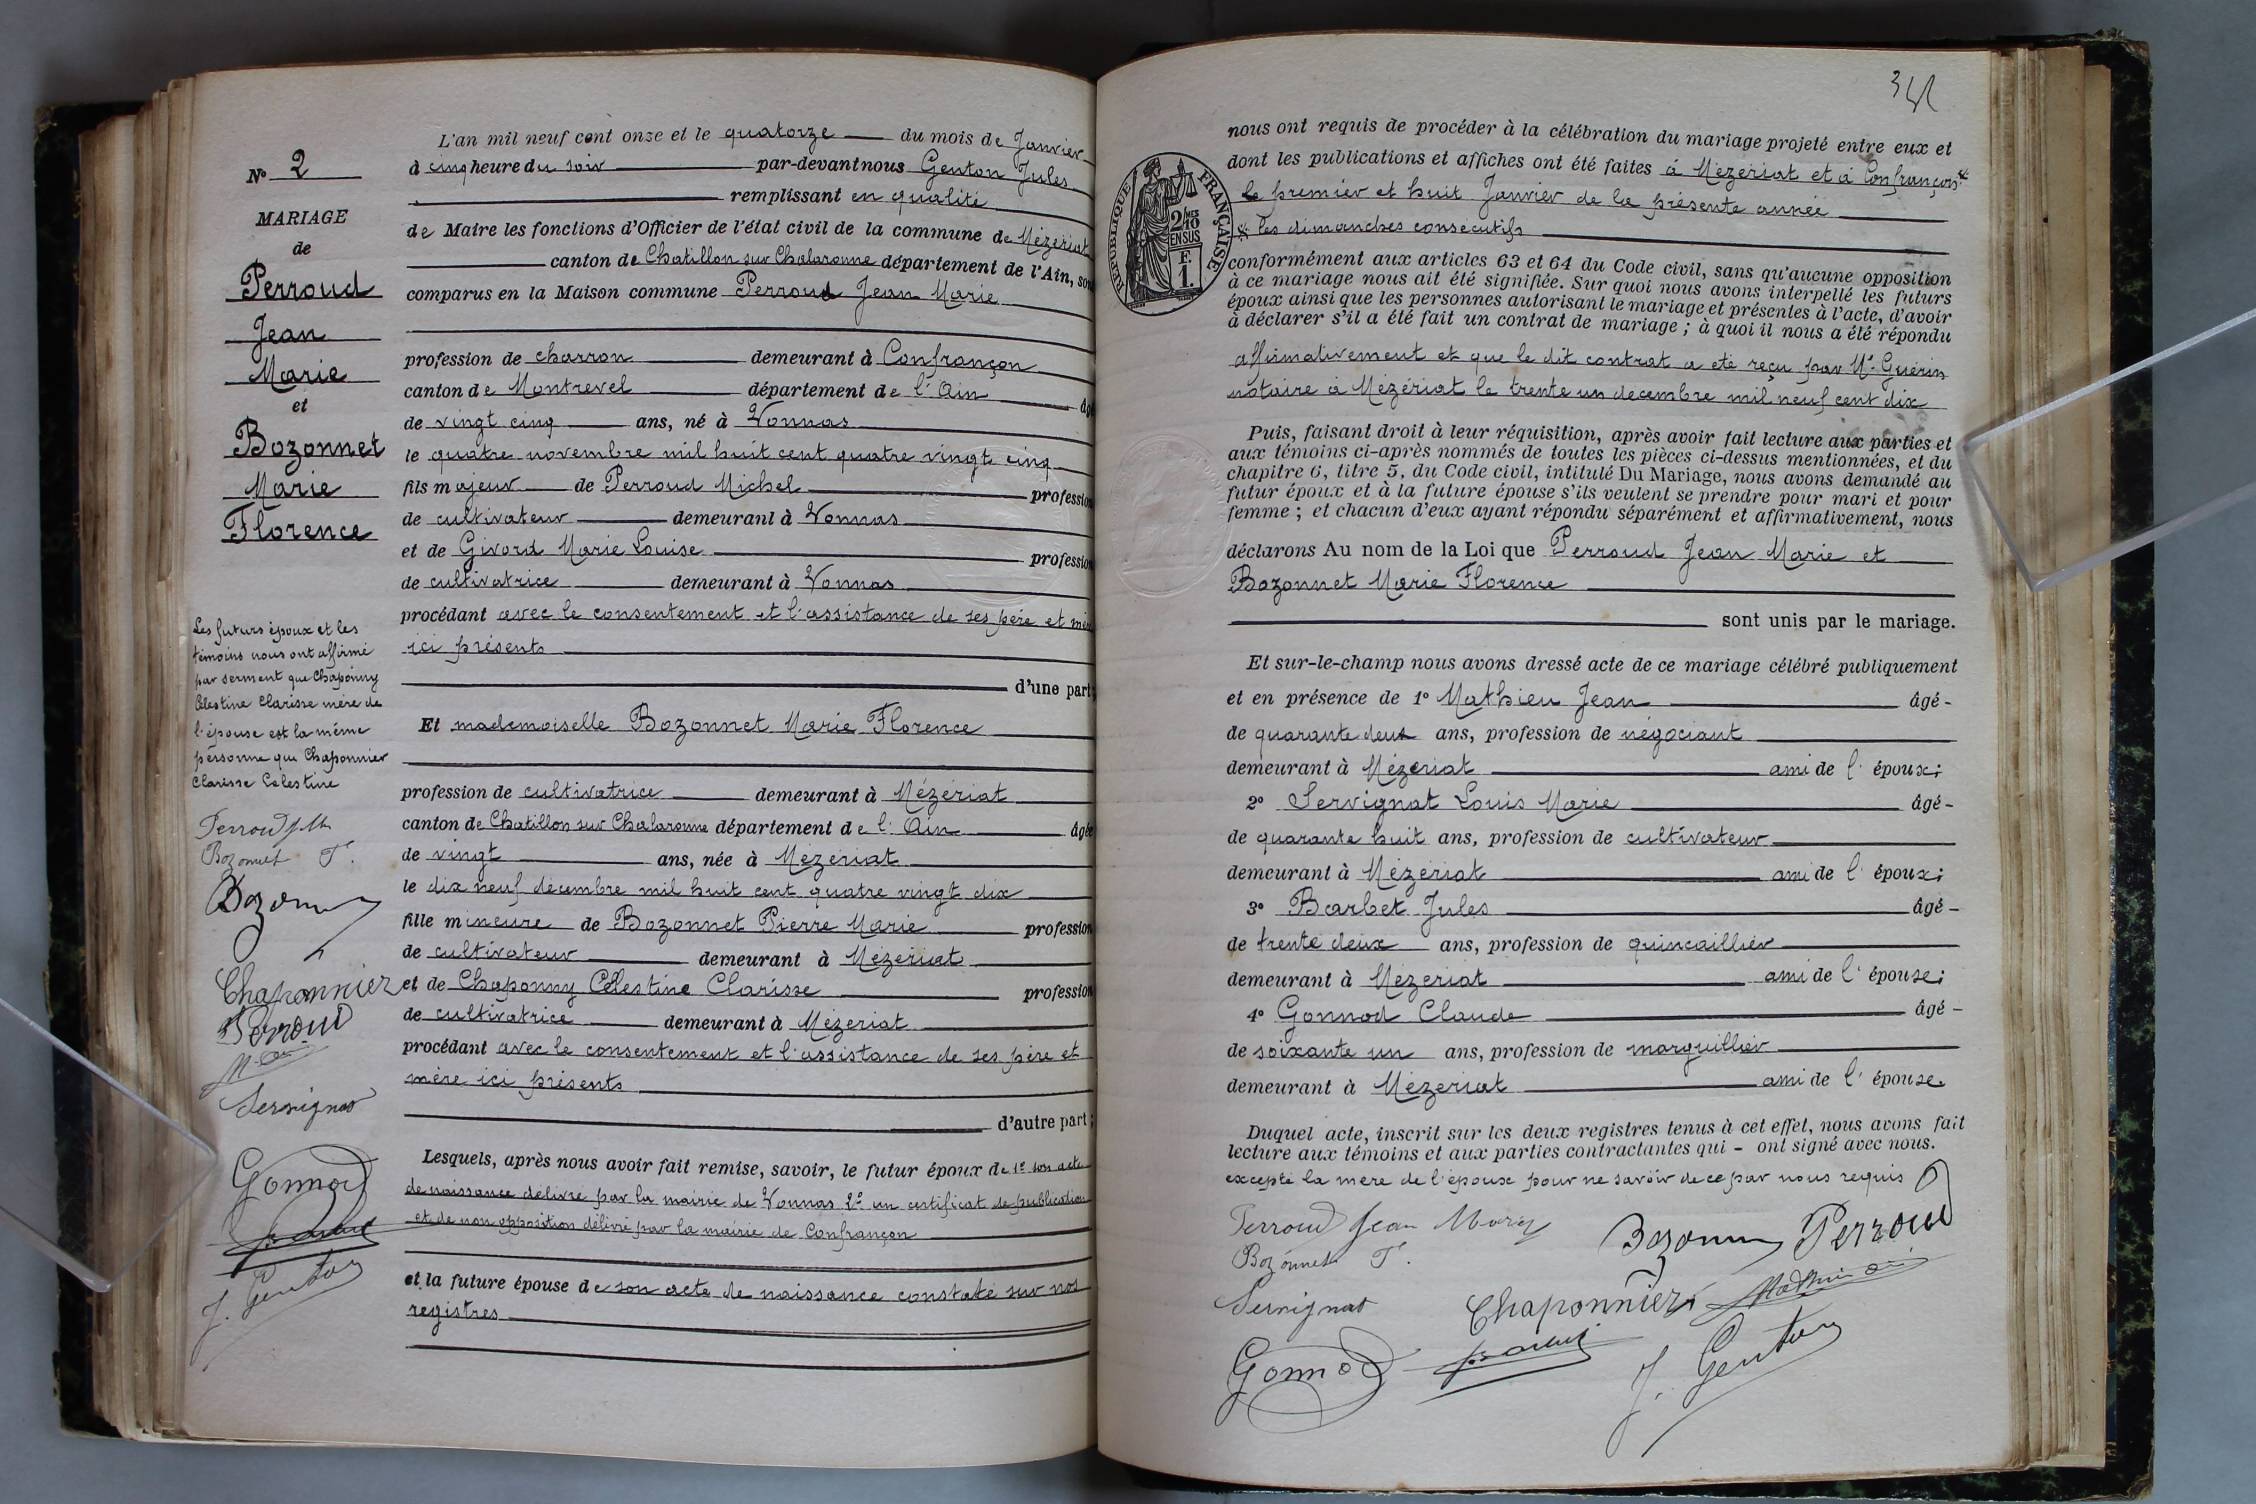 L'an mil neuf cent onze et le quatorze du mois de Janvier
à cinq heure du soir par-devant nous Genton Jules
remplissant en qualité
de Maire les fonctions d'Officier de l'état civil de la commune de Mézériat
canton de Chatillon sur Chalaronne département de l'Ain, son
comparus en la Maison commune Perroud Jean Marie
profession de charron demeurant à Confrançon
canton de Montrevel département de l'Ain âgé
de vingt cinq ans, né à Vonnas
le quatre novembre mil huit cent quatre vingt cinq
fils majeur de Perroud Michel profession
de cultivateur demeurant à Vonnas
et de Givord Marie Louise profession
de cultivatrice demeurant à Vonnas
procédant avec le consentement et l'assistance de ses père et mère
ici présents
d'une part;
Et mademoiselle Bozonnet Marie Florence
profession de cultivatrice demeurant à Mézériat
canton de Chatillon sur Chalaronne département de l'Ain âgée
de vingt ans, née à Mézériat
le dix neuf décembre mil huit cent quatre vingt dix
fille mineure de Bozonnet Pierre Marie profession
de cultivateur demeurant à Mézériat
et de Chaponny Célestine Clarisse profession
de cultivatrice demeurant à Mézériat
procédant avec le consentement et l'assistance de ses père et
mère ici présents
d'autre part;
Lesquels, après nous avoir fait remise, savoir, le futur époux de 1º son acte
de naissance délivré par la mairie de Vonnas 2º un certificat de publication
et de non opposition délivré par la mairie de Confrançon
et la future épouse de son acte de naissance constaté sur nos
registres
Nº 2
MARIAGE
de
Perroud
Jean
Marie
et
Bozonnet
Marie
Florence
Les futurs époux et les
témoins nous ont affirmé
par serment que Chaponny
Célestine Clarisse mère de
l'épouse est la même
personne que Chaponnier
Clarisse Célestine
Perroud J M
Bozonnet F.
Bozonn
Chaponnier
Perroud
Servignat
Gonnod
J. Genton
nous ont requis de procéder à la célébration du mariage projeté entre eux et
dont les publications et affiches ont été faites à Mézériat et à Confrançon *
le premier et huit Janvier de la présente année
* les dimanches consécutifs
RÉPUBLIQUE FRANÇAISE
2/10 EN SUS
F
1.
conformément aux articles 63 et 64 du Code civil, sans qu'aucune opposition
à ce mariage nous ait été signifiée. Sur quoi nous avons interpellé les futurs
époux ainsi que les personnes autorisant le mariage et présentes à l'acte, d'avoir
à déclarer s'il a été fait un contrat de mariage ; à quoi il nous a été répondu
affirmativement et que le dit contrat a été reçu par Me Guérin
notaire à Mézériat le trente un décembre mil neuf cent dix
Puis, faisant droit à leur réquisition, après avoir fait lecture aux parties et
aux témoins ci-après nommés de toutes les pièces ci-dessus mentionnées, et du
chapitre 6, titre 5, du Code civil, intitulé Du Mariage, nous avons demandé au
futur époux et à la future épouse s'ils veulent se prendre pour mari et pour
femme ; et chacun d'eux ayant répondu séparément et affirmativement, nous
déclarons Au nom de la Loi que Perroud Jean Marie et
Bozonnet Marie Florence
sont unis par le mariage.
Et sur-le-champ nous avons dressé acte de ce mariage célébré publiquement
et en présence de 1º Mathieu Jean âgé -
de quarante deux ans, profession de négociant
demeurant à Mézériat ami de l'époux;
2º Servignat Louis Marie âgé -
de quarante huit ans, profession de cultivateur
demeurant à Mézériat ami de l'époux;
3º Barbet Jules âgé -
de trente deux ans, profession de quincaillier
demeurant à Mézériat ami de l'épouse;
4º Gonnod Claude âgé -
de soixante un ans, profession de marguillier
demeurant à Mézériat ami de l'épouse.
Duquel acte, inscrit sur les deux registres tenus à cet effet, nous avons fait
lecture aux témoins et aux parties contractantes qui - ont signé avec nous.
excepté la mère de l'époux pour ne savoir de ce par nous requis
Perroud Jean Mary
Bozonn Perroud
Bozonnet F.
Servignat Chaponnier
Gonnod
J. Genton